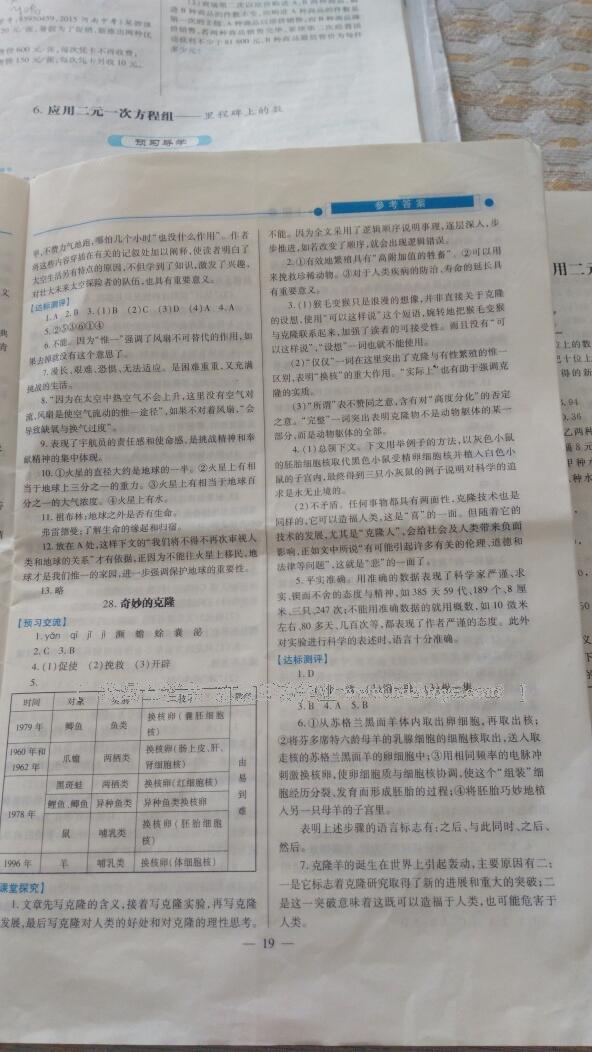 6. 应用二元一次方程组——里程碑上的数
预习导学
参考答案
单,不费力气地跑,哪怕几个小时”也没什么作用”。作者
将这些内容穿插在有关的记叙处加以阐释,使读者明白了
太空生活另有特点的原因,不但学到了知识,激发了兴趣,
对壮大未来太空探险者的队伍,也具有重要意义。
【达标测评】
1. A 2. B 3. (1)B (2)C (3)D (4)A 4. A
5. ②⑤③⑥①④
6. 不能。因为“惟一”强调了风扇不可替代的作用,如
果去掉就没有这个意思了。
7. 漫长、艰难、恐惧、无法适应。是困难重重、又充满
挑战的生活。
8. “因为在太空中热空气不会上升,这里没有空气对
流,风扇是使空气流动的惟一途径”,如果不对着风扇,“会
导致缺氧与换气过度”。
9. 表现了宇航员的责任感和使命感,是挑战精神和奉
献精神的集中体现。
10. ①火星的直径大约是地球的一半。②火星上有相
当于地球上三分之一的重力。③火星上有相当于地球百
分之一的大气浓度。④火星上有水。
11. 祖布林:地球之外是否有生命。
弗雷德曼:了解生命的缘起和归宿。
12. 放在A处,这样下文的“我们将不得不再次审视人
类和地球的关系”才有依据,正因为不能往火星上移民,地
球才是我们惟一的家园,进一步强调保护地球的重要性。
13. 略
28. 奇妙的克隆
【预习交流】
1. yǎn qí jǐ jì 濒 蟾 蜍 囊 泌
2. C 3. B
4. (1)促使 (2)挽救 (3)开辟
5.
时间 对象
1979年 鲫鱼 鱼类 换核卵(囊胚细胞核)
1960年和1962年 爪蟾 两栖类 换核卵(肠上皮、肝、肾细胞核)
1978年 黑斑蛙 两栖类 换核卵(红细胞核)
鲤鱼、鲫鱼 异种鱼类 异种鱼类换核卵
鼠 哺乳类 换核卵(胚胎细胞核)
1996年 羊 哺乳类 换核卵(体细胞核)
由易到难
课堂探究】
1. 文章先写克隆的含义,接着写克隆实验,再写克隆
发展,最后写克隆对人类的好处和对克隆的理性思考。
不能。因为全文采用了逻辑顺序说明事理,逐层深入,步
步推进,如若改变了顺序,就会出现逻辑错误。
2. ①有效地繁殖具有“高附加值的牲畜”。②可以用
来挽救珍稀动物。③对于人类疾病的防治、寿命的延长具
有重要意义。
3. (1)猴毛变猴只是浪漫的想像,并非直接关于克隆
的设想,使用“可以这样说”这个短语,婉转地把猴毛变猴
与克隆联系起来,加强了读者的可接受性。而且没有“可
以这样说”,“设想”一词也就不能使用。
(2)“仅仅”一词在这里突出了克隆与有性繁殖的惟一
区别,表明“核换”的重大作用。“实际上”也有助于强调克
隆的实质。
(3)“所谓”表不赞同之意,含有对“高度分化”的否定
之意。“完整”一词突出表明克隆物不是动物躯体的某一
部分,而是动物躯体的全部。
4. (1)总领下文。下文用举例子的方法,以灰色小鼠
的胚胎细胞核取代黑色小鼠受精卵细胞核并植入白色小
鼠的子宫内,最终得到三只小灰鼠的例子说明对科学的追
求是永无止境的。
(2)不矛盾。任何事物都具有两面性,克隆技术也是
同样的,它可以造福人类,这是“喜”的一面。但随着它的
技术的发展,尤其是“克隆人”,会给社会及人类带来负面
影响,正如文中所说“有可能引起许多有关的伦理、道德和
法律等问题”,这就是“悲”的一面了。
5. 平实准确。用准确的数据表现了科学家严谨、求
实、锲而不舍的态度与精神,如385天59代、189个、8厘
米、三只、247次;不能用准确数据的就用概数,如10微米
左右、80多天、几百次等,都表现了作者严谨的态度。此外
对实验进行科学的表述时,语言十分准确。
【达标测评】
1. D
3. B 4. A 5. B
6. ①从苏格兰黑面羊体内取出卵细胞,再取出核;
②将芬多席特六龄母羊的乳腺细胞的细胞核取出,送入取
走核的苏格兰黑面羊的卵细胞中;③用相同频率的电脉冲
刺激换核卵,使卵细胞质与细胞核协调,使这个“组装”细
胞经历分裂、发育而形成胚胎的过程;④将胚胎巧妙地植
入另一只母羊的子宫里。
表明上述步骤的语言标志有:之后、与此同时、之后、
然后。
7. 克隆羊的诞生在世界上引起轰动,主要原因有二:
一是它标志着克隆研究取得了新的进展和重大的突破;二
是这一突破意味着这既可以造福于人类,也可能危害于
人类。
— 19 —